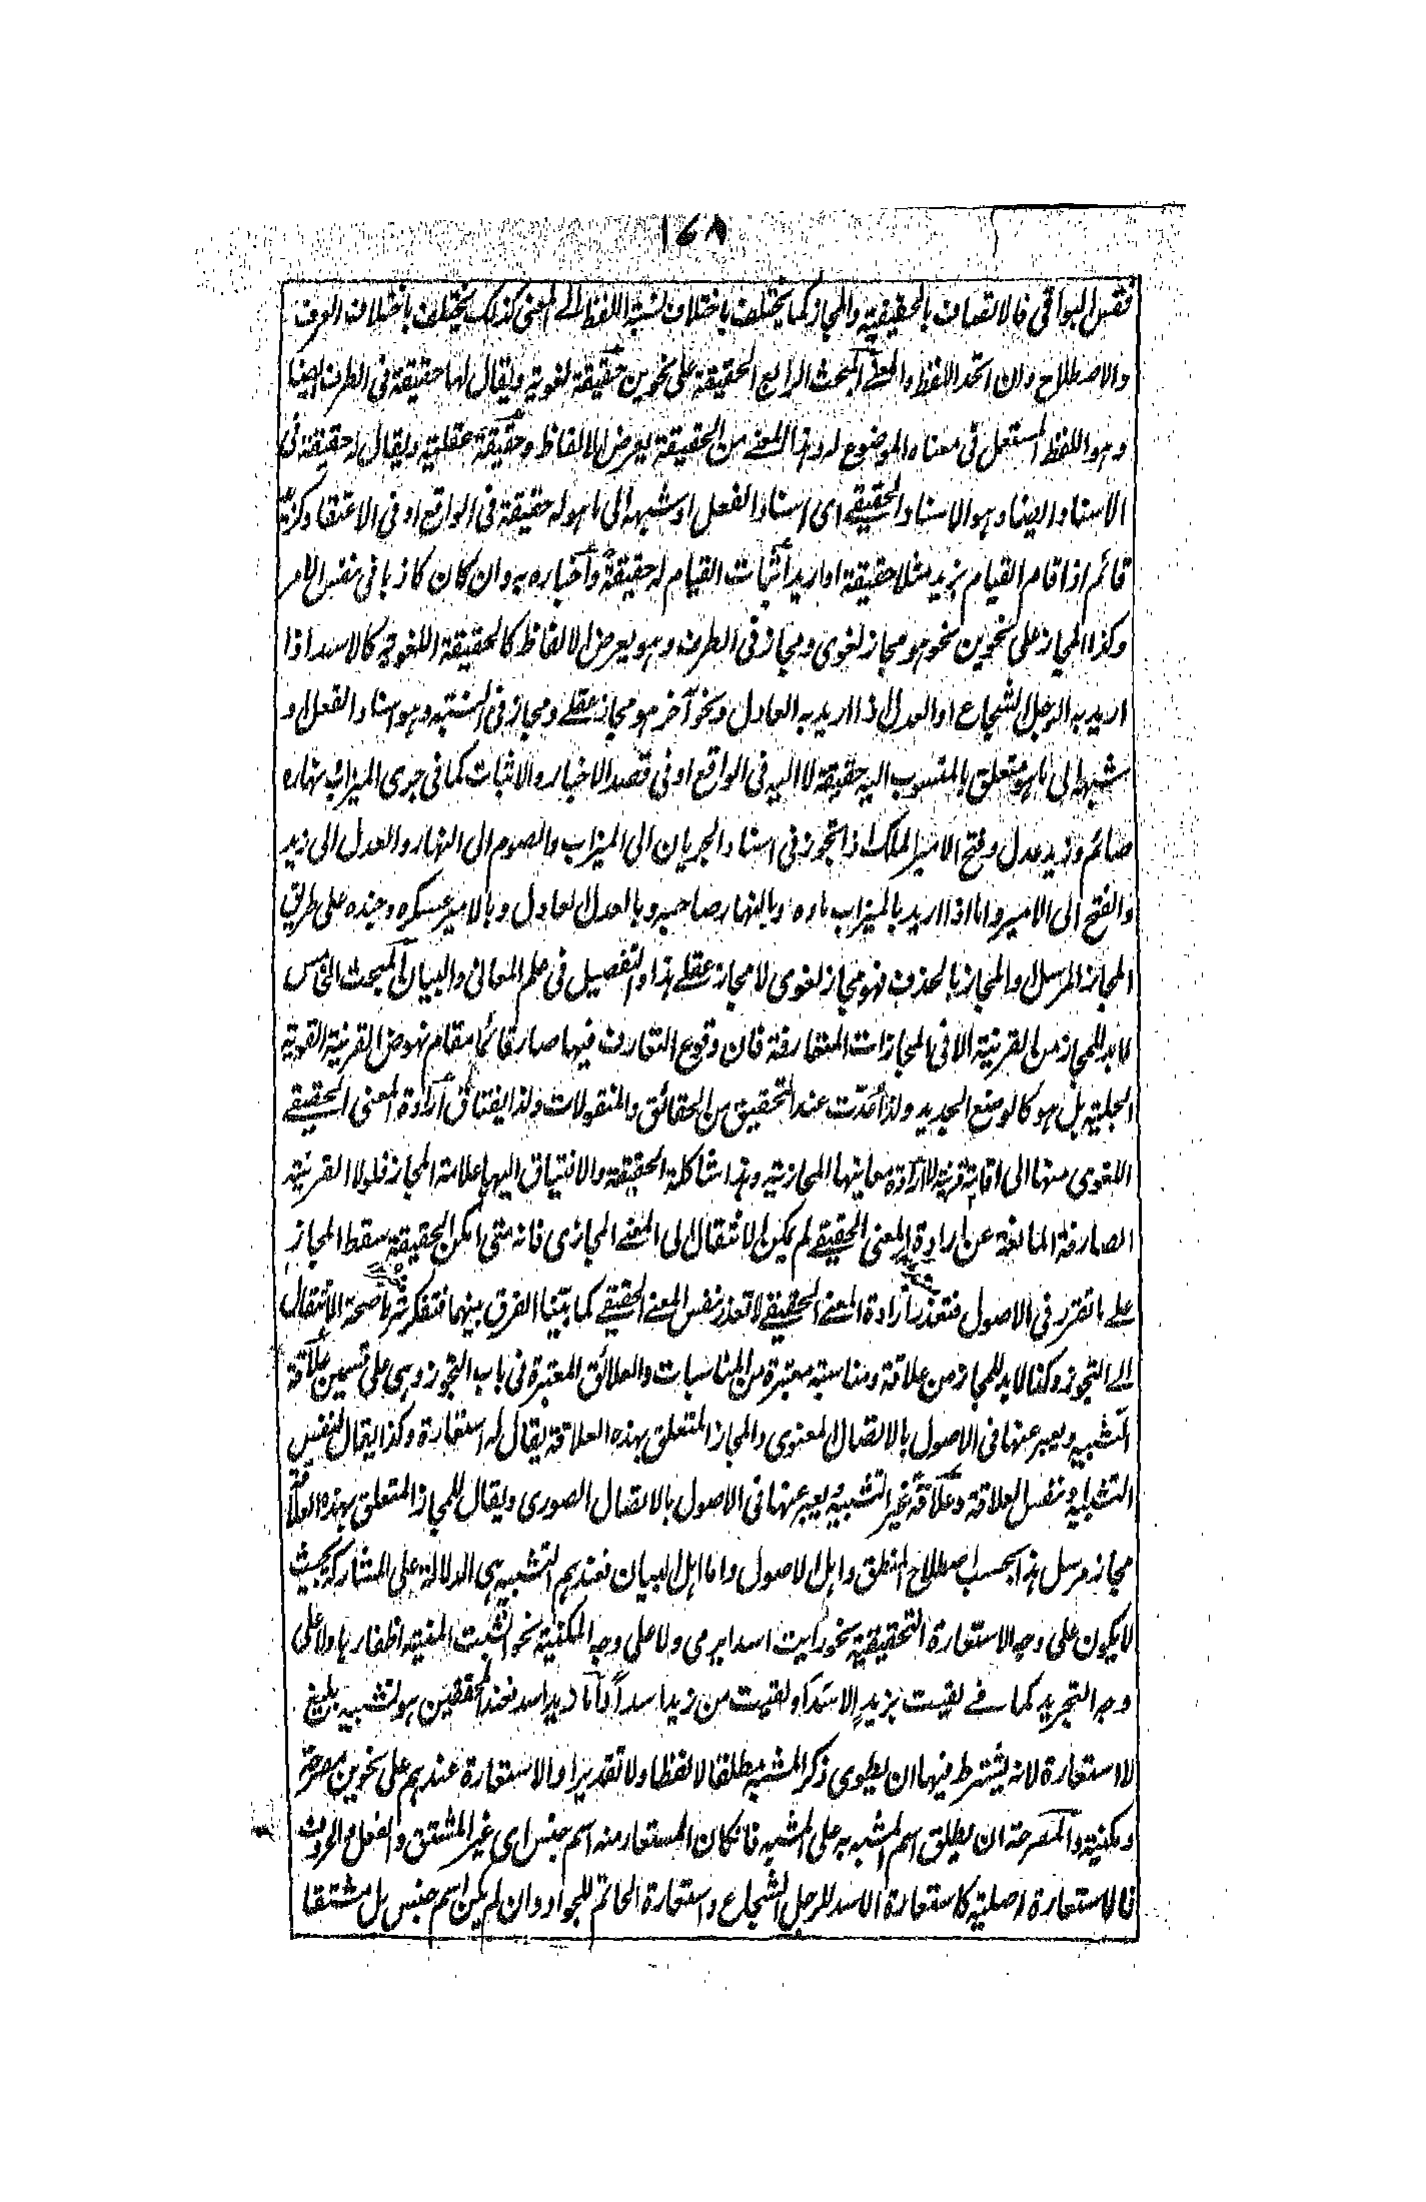 ١٤٨
فقس البواقي فالاتصاف بالحقيقية والمجاز كما يختلف باختلاف نسبة اللفظ الى المعنى كذلك يختلف باختلاف العرف
والاصطلاح وان اتحد اللفظ والمعنى المبحث الرابع الحقيقة على نحوين حقيقة لغوية ويقال لها حقيقة في الطرف ايضا
وهو اللفظ المستعمل في معناه الموضوع له وهذا المعنى من الحقيقة يعرض الالفاظ وحقيقة عقلية ويقال له حقيقة في
الاسناد ايضا وهو الاسناد الحقيقي اى اسناد الفعل او شبهه الى ما هو له حقيقة في الواقع او في الاعتقاد كزيد
قائم اذا قام القيام بزيد مثلا حقيقة او اريد اثبات القيام له حقيقة واخباره به وان كان كاذبا في نفس الامر
وكذا المجاز على نحوين نحو هو مجاز لغوى ومجاز في الطرف وهو يعرض الالفاظ كالحقيقة اللغوية كالاسد اذا
اريد به الرجل الشجاع او العدل اذا اريد به العادل ونحو آخر هو مجاز عقلي ومجاز في النسبة وهو اسناد الفعل او
شبهه الى ما هو متعلق بالمنسوب اليه حقيقة لا اليه في الواقع او في قصد الاخبار والاثبات كما في جرى الميزاب نهاره
صائم وزيد عدل وفتح الامير الملك اذا تجوز في اسناد الجريان الى الميزاب والصوم الى النهار والعدل الى زيد
والفتح الى الامير واما اذا اريد بالميزاب ماءه وبالنهار صاحبه وبالعدل العادل وبالامير عسكره وجنده على طريق
المجاز المرسل والمجاز بالحذف فهو مجاز لغوى لا مجاز عقلي هذا والتفصيل في علم المعاني والبيان المبحث الخامس
لابد للمجاز من القرينة الا في المجازات المتعارفة فان وقوع التعارف فيها صار قائما مقام نهوض القرينة القوية
الجلية بل هو كالوضع الجديد ولذا عدت عند التحقيق من الحقائق والمنقولات ولذا يفتاق ارادة المعنى الحقيقي
اللغوى منها الى اقامة قرينة لا ارادة معاينها المجازية وهذا شاكلة الحقيقة والافتياق اليها علامة المجاز فلولا القرينة
الصارفة المانعة عن ارادة المعنى الحقيقي لم يمكن الانتقال الى المعنى المجازى فانه متى امكن الحقيقة سقط المجاز
على ما تقرر في الاصول فتعذر ارادة المعنى الحقيقي لا تعذر نفس المعنى الحقيقي كما بينا الفرق بينهما فتفكر صحة الانتقال
الى التجوز وكذا لابد للمجاز من علاقة ومناسبة معتبرة من المناسبات والعلائق المعتبرة في باب التجوز وهى على قسمين علاقة
التشبيه ويعبر عنها في الاصول بالاتصال المعنوى والمجاز المتعلق بهذه العلاقة يقال له استعارة وكذا يقال لنفس
التشبيه ونفس العلاقة وعلاقة غير التشبيه يعبر عنها في الاصول بالاتصال الصورى ويقال للمجاز المتعلق بهذه العلاقة
مجاز مرسل هذا بحسب اصطلاح المنطق واهل الاصول واما اهل البيان فعندهم التشبيه هى الدلالة على المشاركة بحيث
لا يكون على وجه الاستعارة التحقيقية نحو رايت اسدا يرمى ولا على وجه المكنية نحو انشبت المنية اظفارها ولا على
وجه التجريد كما في لقيت بزيد الاسد او لقيت من زيد اسدا واما زيد اسد فعند المحققين هو تشبيه بليغ
لا استعارة لانه يشترط فيها ان يطوى ذكر المشبه مطلقا لا لفظا ولا تقديرا والاستعارة عندهم على نحوين مصرحة
ومكنية والمصرحة ان يطلق اسم المشبه به على المشبه فان كان المستعار منه اسم جنس اى غير المشتق والفعل والحروف
فالاستعارة اصلية كاستعارة الاسد للرجل الشجاع واستعارة الحاتم للجواد وان لم يكن اسم جنس بل مشتقا